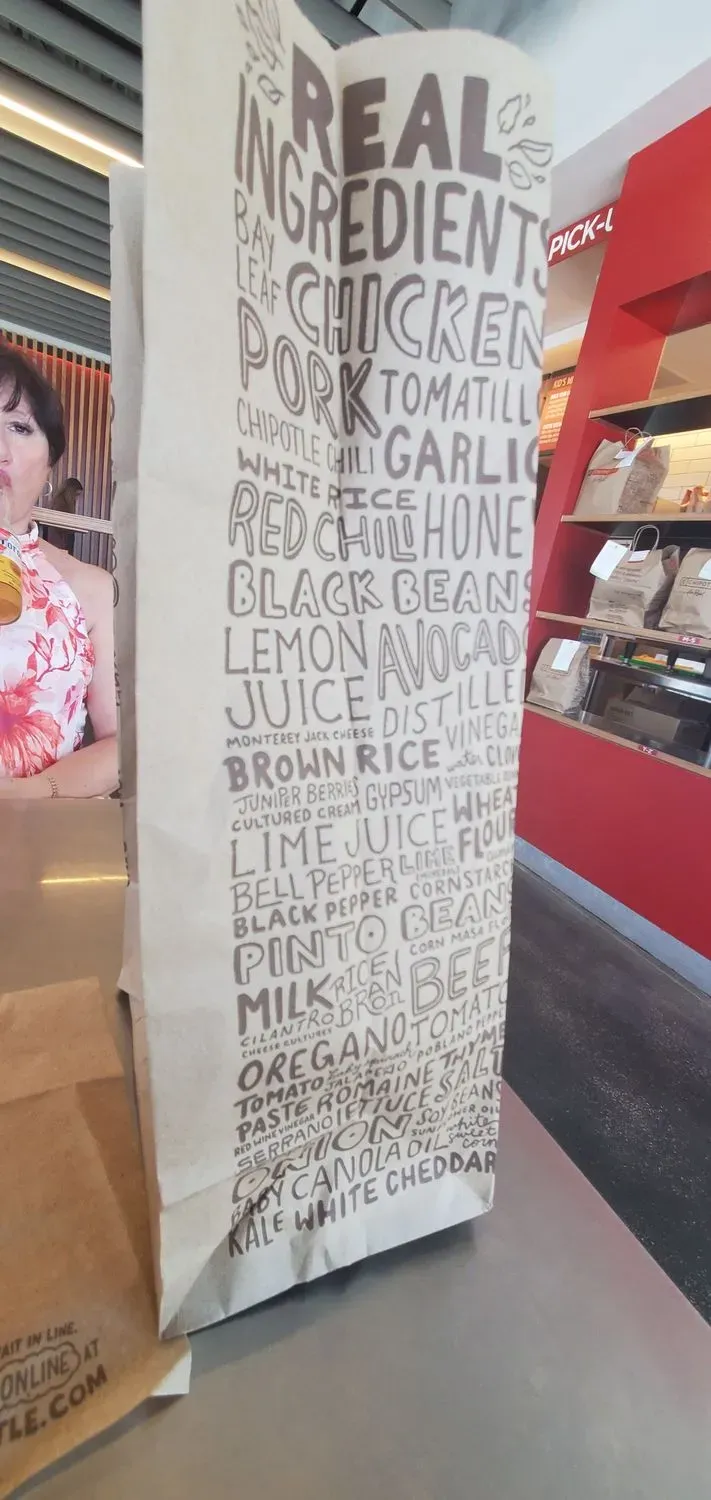 REAL
INGREDIENTS
BAY LEAF
CHICKEN
PORK
TOMATILL
CHIPOTLE CHILI
GARLIC
WHITE RICE
RED CHILI
HONEY
BLACK BEANS
LEMON JUICE
AVOCADO
MONTEREY JACK CHEESE
DISTILLED
VINEGA
BROWN RICE
water
CLOV
JUNIPER BERRIES
GYPSUM
VEGETABLE
CULTURED CREAM
WHEAT FLOUR
LIME JUICE
BELL PEPPER
LIME
BLACK PEPPER
CORNSTARC
PINTO BEANS
CORN MASA FLO
MILK
RICE BRAN OIL
BEEF
CILANTRO
CHEESE CULTURES
OREGANO
TOMATO
TOMATO PASTE
JALAPEÑO
POBLANO PEPPE
ROMAINE LETTUCE
THYME
SALT
RED WINE VINEGAR
SERRANO
SOYBEANS
ONION
white sweet corn
BABY KALE
CANOLA OIL
WHITE CHEDDAR
PICK-U
KID'S M
CHIPOT
M-S
T-Z
AIT IN LINE.
ONLINE AT
TLE.COM